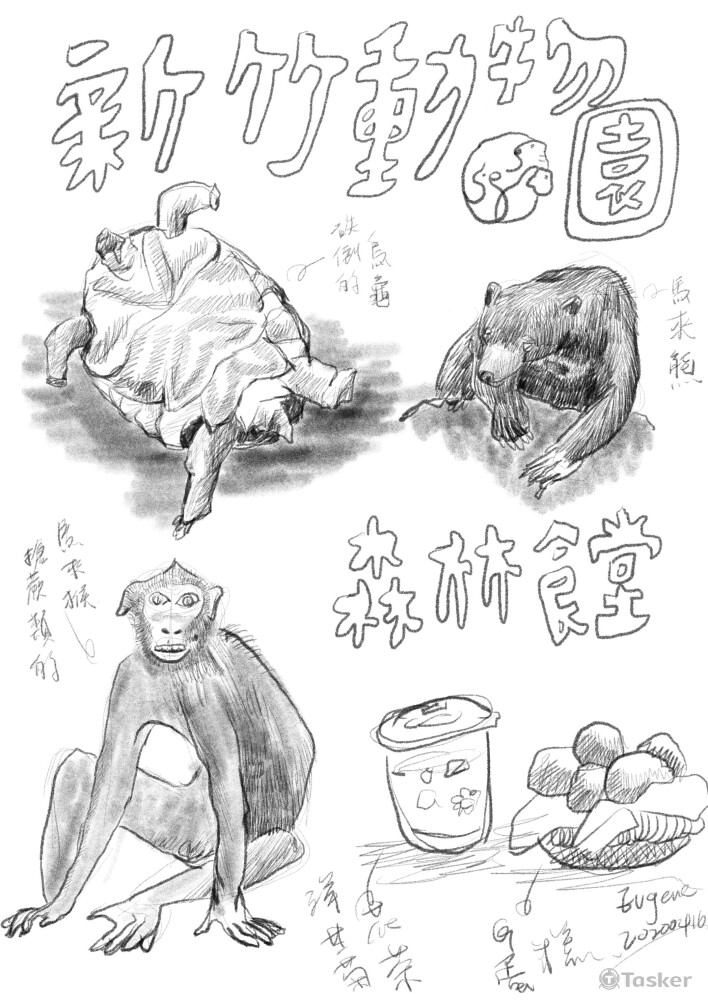 新竹動物園
跌倒的
烏龜
馬來熊
馬來猴
搶蕨類的
森林食堂
洋甘菊
茶
蛋糕
Eugene
20200416
Tasker